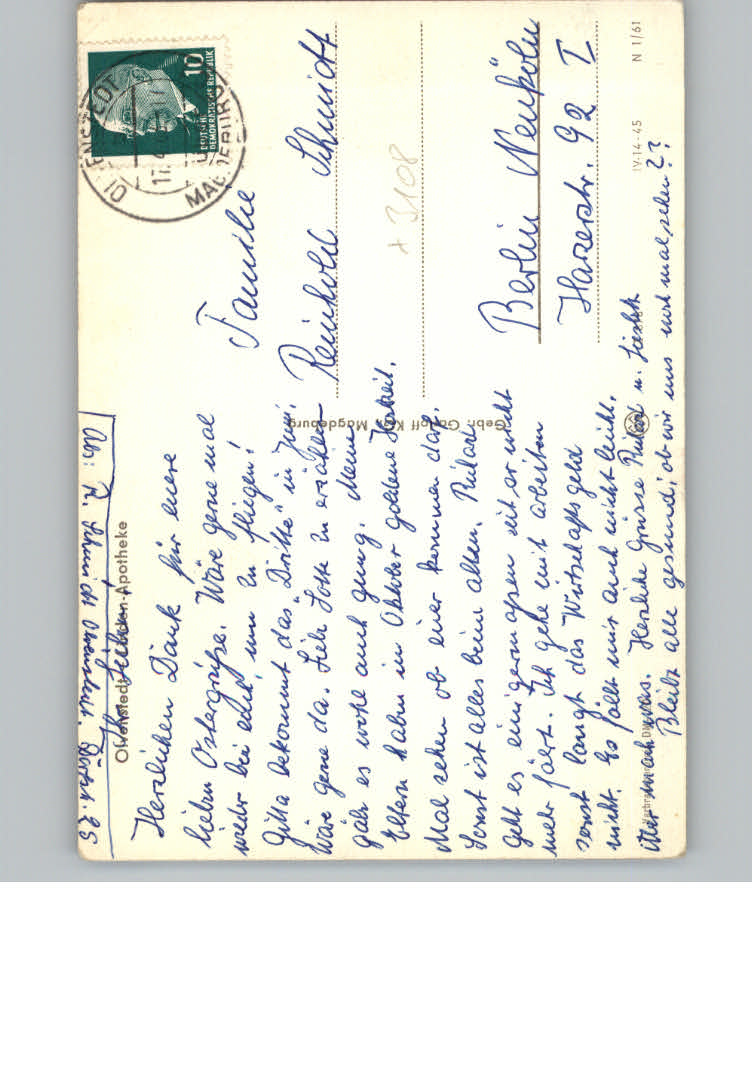 Abs: R. Schmidt Olvenstedt.
Olvenstedt Linden-Apotheke
Ihr Lieben!
Herzlichen Dank für eure
lieben Ostergrüße. Wäre gerne mal
wieder bei euch, um zu fliegen!
Gitta bekommt das "Dritte" im Juni.
Wäre gerne da. Zu erzählen
gäb es wohl auch genug. Meine
Eltern habn im Oktober goldene Hochzeit.
Mal sehen ob einer kommen darf.
Sonst ist alles beim alten. Richard
geht es einigermaßen seit er nicht
mehr fährt. Ich gehe mit arbeiten
sonst langt das Wirtschaftsgeld
nicht. Es fällt mir auch nicht leicht.
Herzliche Grüsse Richard u. Liesbeth
Bleibt alle gesund, ob wir uns noch mal sehen??
Gebr. Garloff KG, Magdeburg
10
DEUTSCHE
DEMOKRATISCHE REPUBLIK
MAGDEBURG
17.
Familie
Reinhold Schmidt
x 3108
Berlin Neukölln
Harzerstr. 92 I
IV-14-45
N 1/61